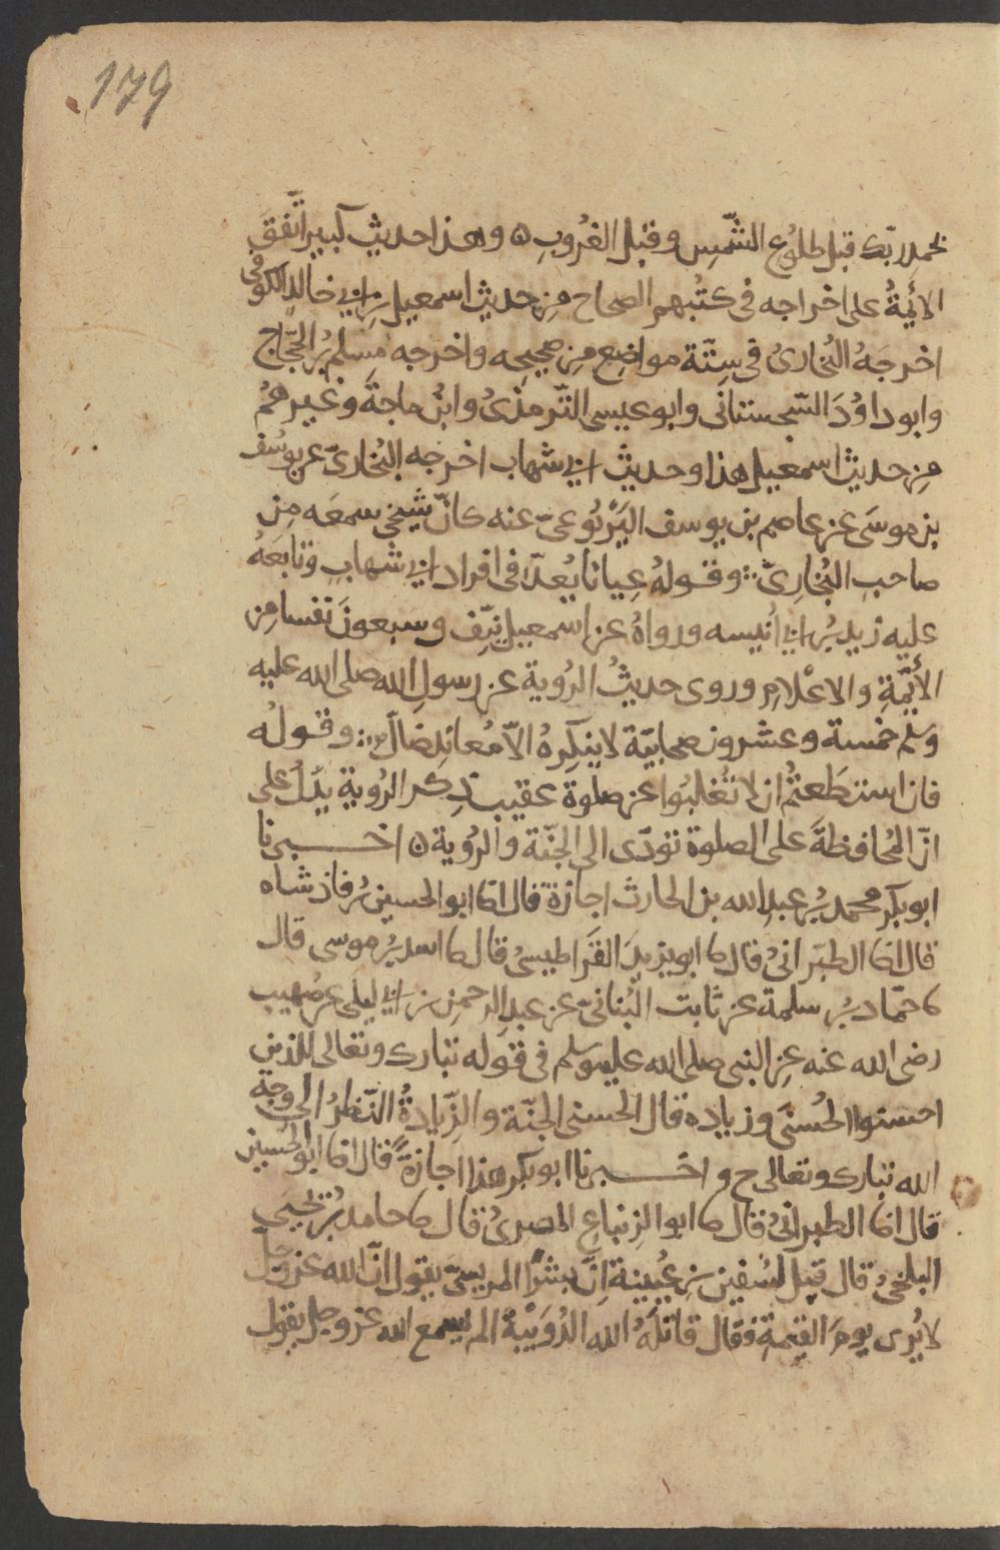 179
بحمد ربّك قبل طلوع الشّمس وقبل الغروب ه وهذا حديث كبير اتّفق
الأئمّة على اخراجه فى كتبهم الصحاح من حديث اسمعيل بن ابي خالد الكوفى
اخرجه البُخارىُ فى ستّة مواضع من صحيحه واخرجه مسلم بن الحجّاج
وابو داوُدَ السّجستانى وابو عيسى التّرمذىُ وابن ماجة وغيرهم
من حديث اسمعيل هذا وحديث ابي شهاب اخرجه البُخارىّ عن يوسف
بن موسى عن عاصم بن يوسف اليَرْبُوعىّ عنه كانّ شيخى سمعه من
صاحب البُخارىّ ∴ وقوله عيانا يُعدّ فى افراد ابي شهاب وتابعَهُ
عليه زيد بن ابي اُنيسه ورواهُ عن اسمعيل نيّف وسبعون نفسا من
الأئمّة والاعلام وروى حديثُ الرُوية عن رسول الله صلى الله عليه
وسلم خمسة وعشرون صحابيّة لا ينكرهُ الاّ مُعاند ضالّ ∴ وقولُه
فان استطعتُم ان لا تُغلبُوا عن صلوة عقيب ذكر الرُوية يدُلُ على
انّ المُحافظةَ على الصلوة تؤدّى الى الجنّة والرُوية ه اخبرنا
ابو بكر محمد بن عبد الله بن الحارث اجازة قال انا ابو الحسين بن فاذشاه
قال انا الطبَرانىُ قال نا ابو يزيدَ القَراطيسىُ قال نا اسد بن موسى قال
نا حمّاد بن سلمة عن ثابت البُنانىّ عن عبد الرحمن بن ابي ليلى عن صُهيب
رضى الله عنه عن النبى صلى الله عليه وسلم فى قوله تبارك وتعالى للذين
احسنوا الحُسنى وزياده قال الحسنى الجنّة والزّيادةُ النّظرُ الى وجه
الله تبارك وتعالى ح واخبرنا ابو بكر هذا اجازةً قال انا ابو الحسين
قال انا الطبرانىُ قال نا ابو الزنباع المصرىُ قال نا حامد بن يحيى
البلخىُ قال قيل لسُفين بن عُيينة انّ بشرًا المريسىّ يقول انّ الله عز وجل
لا يُرى يوم القيمة فقال قاتلَهُ الله الدُوَيْبّة الم يسمع الله عز وجل يقول